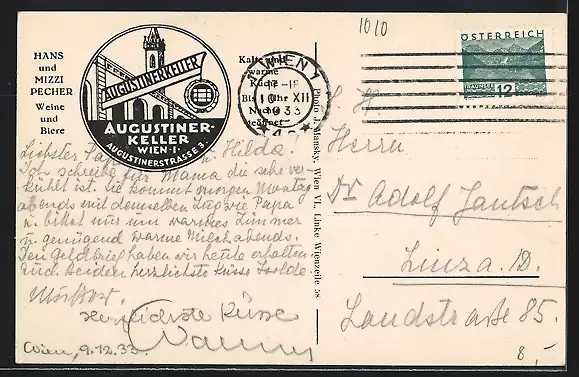 HANS
und
MIZZI
PECHER
Weine
und
Biere
AUGUSTINERKELLER
AUGUSTINER-
KELLER
WIEN·I·
AUGUSTINERSTRASSE 3.
Kalte und
warme
Küche
Bis 1 Uhr
Nachts
geöffnet
WIEN 1
XII
1933
1010
ÖSTERREICH
12
Photo J. Mansky, Wien VI., Linke Wienzeile 58
Liebster Papa u. Hilda!
Ich schreibe für Mama die sehr ver-
kühlt ist. Sie kommt morgen Montag
abends mit demselben Zug wie Papa
u. bittet nur um warmes Zimmer
u. genügend warme Milch abends.
Den Geldbrief haben wir heute erhalten.
Euch beiden herzlichste Küsse Isolde.
Herzlichste Küsse
Wien, 9.12.33.
S. H.
Herrn
Dr Adolf Jantsch
Linz a. D.
Landstraße 85.
8,-